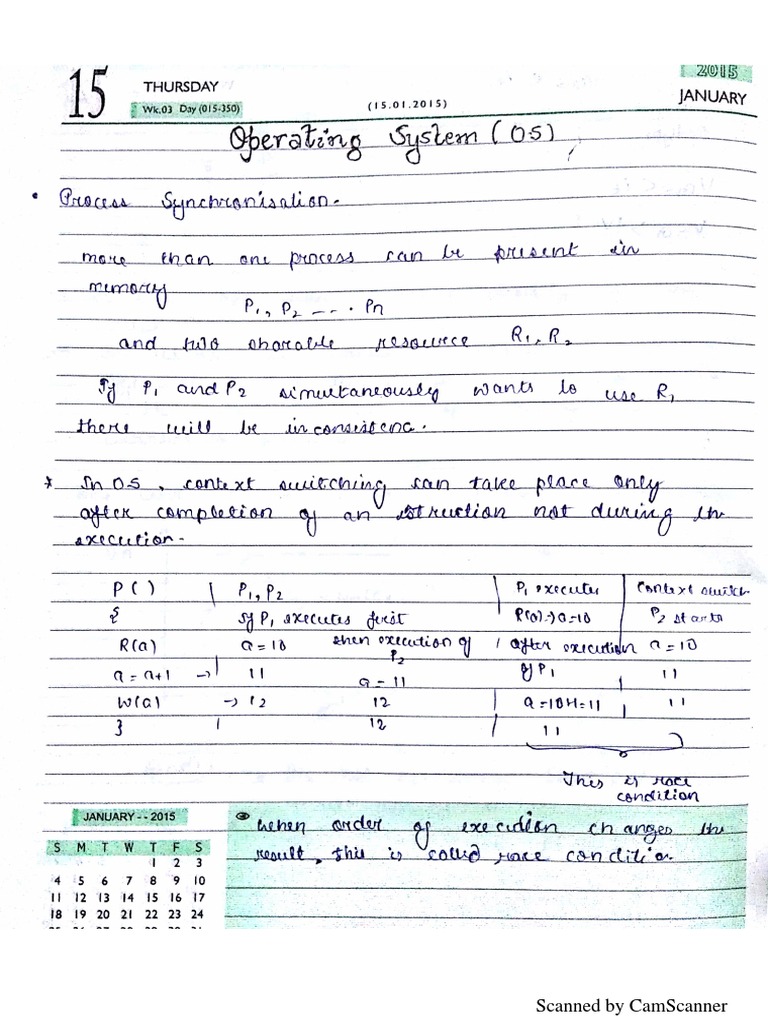 15 THURSDAY 2015
Wk.03 Day (015-350) (15.01.2015) JANUARY
Operating System (OS)
• Process Synchronisation.
more than one process can be present in
memory
P1, P2 --- . Pn
and two sharable resource R1, R2
If P1 and P2 simultaneously wants to use R1
there will be inconsistenc.
* In OS, context switching can take place only
after completion of an istruction not during the
execution.
P( ) | P1, P2 | P1 executes | context switch
{ if P1 executes first | R(a)→a=10 | P2 starts
R(a) a=10 then execution of P2 | after execution of P1 a=10
a = a+1 → | 11 a = 11 | 11
W(a) → 12 12 | a=10+1=11 | 11
} | 12 | 11
This is race
condition
when order of execution changes the
result, this is called race condition.
JANUARY -- 2015
S M T W T F S
1 2 3
4 5 6 7 8 9 10
11 12 13 14 15 16 17
18 19 20 21 22 23 24
Scanned by CamScanner